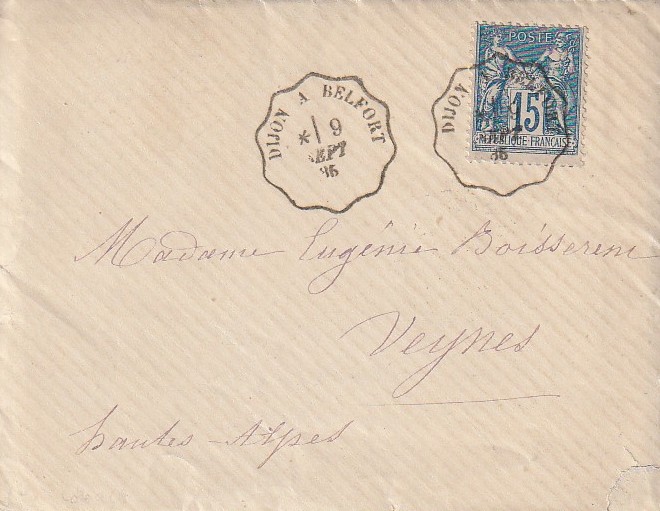 POSTE
15
REPUBLIQUE FRANÇAISE
DIJON A BELFORT
* 9
SEPT
85
DIJON
9
85
Madame Eugénie
Veynes
hautes-Alpes